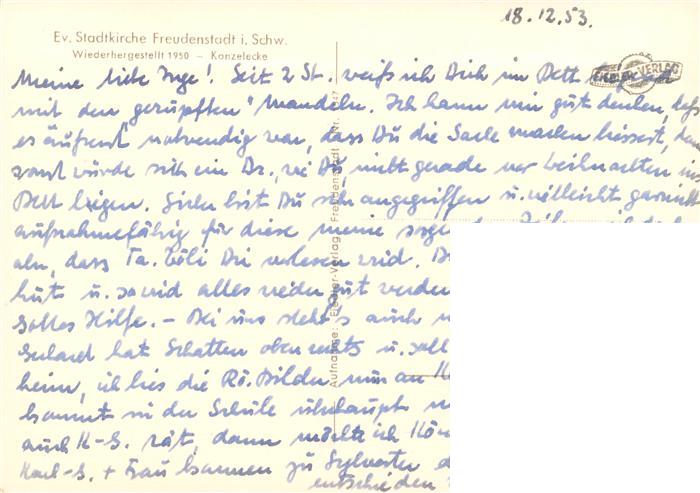 18.12.53.
Ev. Stadtkirche Freudenstadt i. Schw.
Wiederhergestellt 1950 – Kanzelecke
EISBIER-VERLAG
Meine liebe Inge! Seit 2 St. weiß ich Dich im Bett
mit den gerupften Mandeln. Ich kann mir gut denken, daß
es äußerst notwendig war, dass Du die Sache machen liessest, denn
sonst würde sich ein Dr., wie Du nicht gerade vor Weihnachten ins
Bett legen. Sicher bist Du sehr angegriffen u. vielleicht garnicht
aufnahmefähig für diese meine
an, dass Ta. Cöli Dir vorlesen wird.
hut u. so wird alles wieder gut werden
Gottes Hilfe. – Bei uns steht's auch
hat Schatten oben rechts u. soll
heim, ich lies die Rö. Bilder nun an
kommt in der Schule überhaupt
auch K-S. rät, dann möchte ich
Karl-S. + Frau kommen zu Sylvester
entschieden